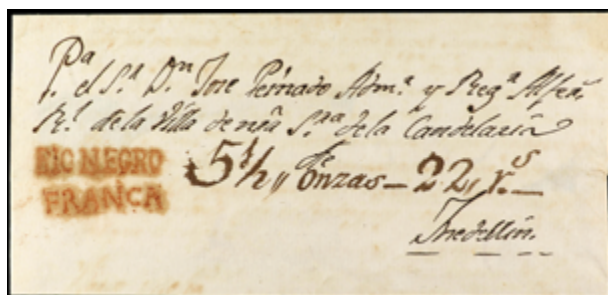 Pª el Sʳ Dⁿ Jose Peinado Admʳ y Regʳ Alferˢ
Rˡ de la Villa de nrã Sʳª de la Candelaria
RIO NEGRO
FRANCA
5 1/2 onzas — 22 rˢ
Medellin.